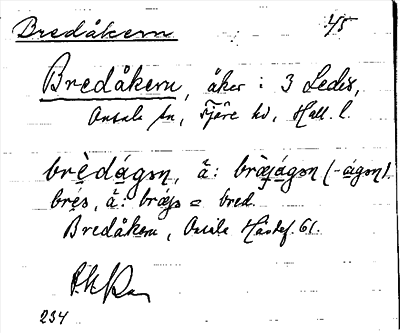 Bredåkern 45
Bredåkern, åker i 3 Ledis,
Onsala sn, Fjäre hd, Hall. l.
brèdágən, ä: brǽjágən (-ágən).
brés, ä: bræjs = bred.
Bredåkern, Onsala Håstef. 61.
234